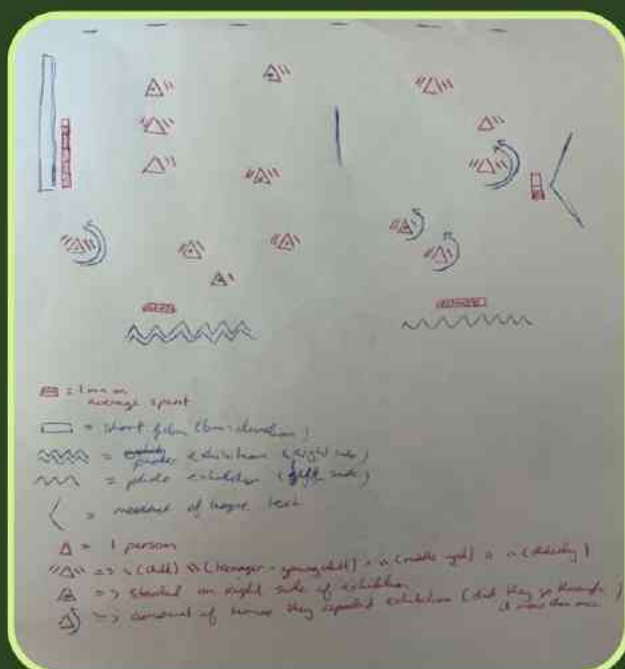 = 1 min on
average spent
= short film (
= photo exhibition (right side)
= photo exhibition (left side)
= moment of
= 1 person
=> (child) (teenager - young adult) (middle aged) (elderly)
=> started on right side of exhibition
=> amount of times they repeated exhibition (did they go through
it more than once